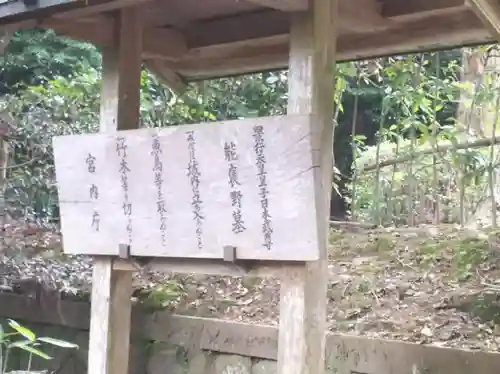 景行天皇皇子日本武尊
能褒野墓
一、みだりに域内に立ち入らぬこと
一、魚鳥等を取らぬこと
一、竹木等を切らぬこと
宮内庁